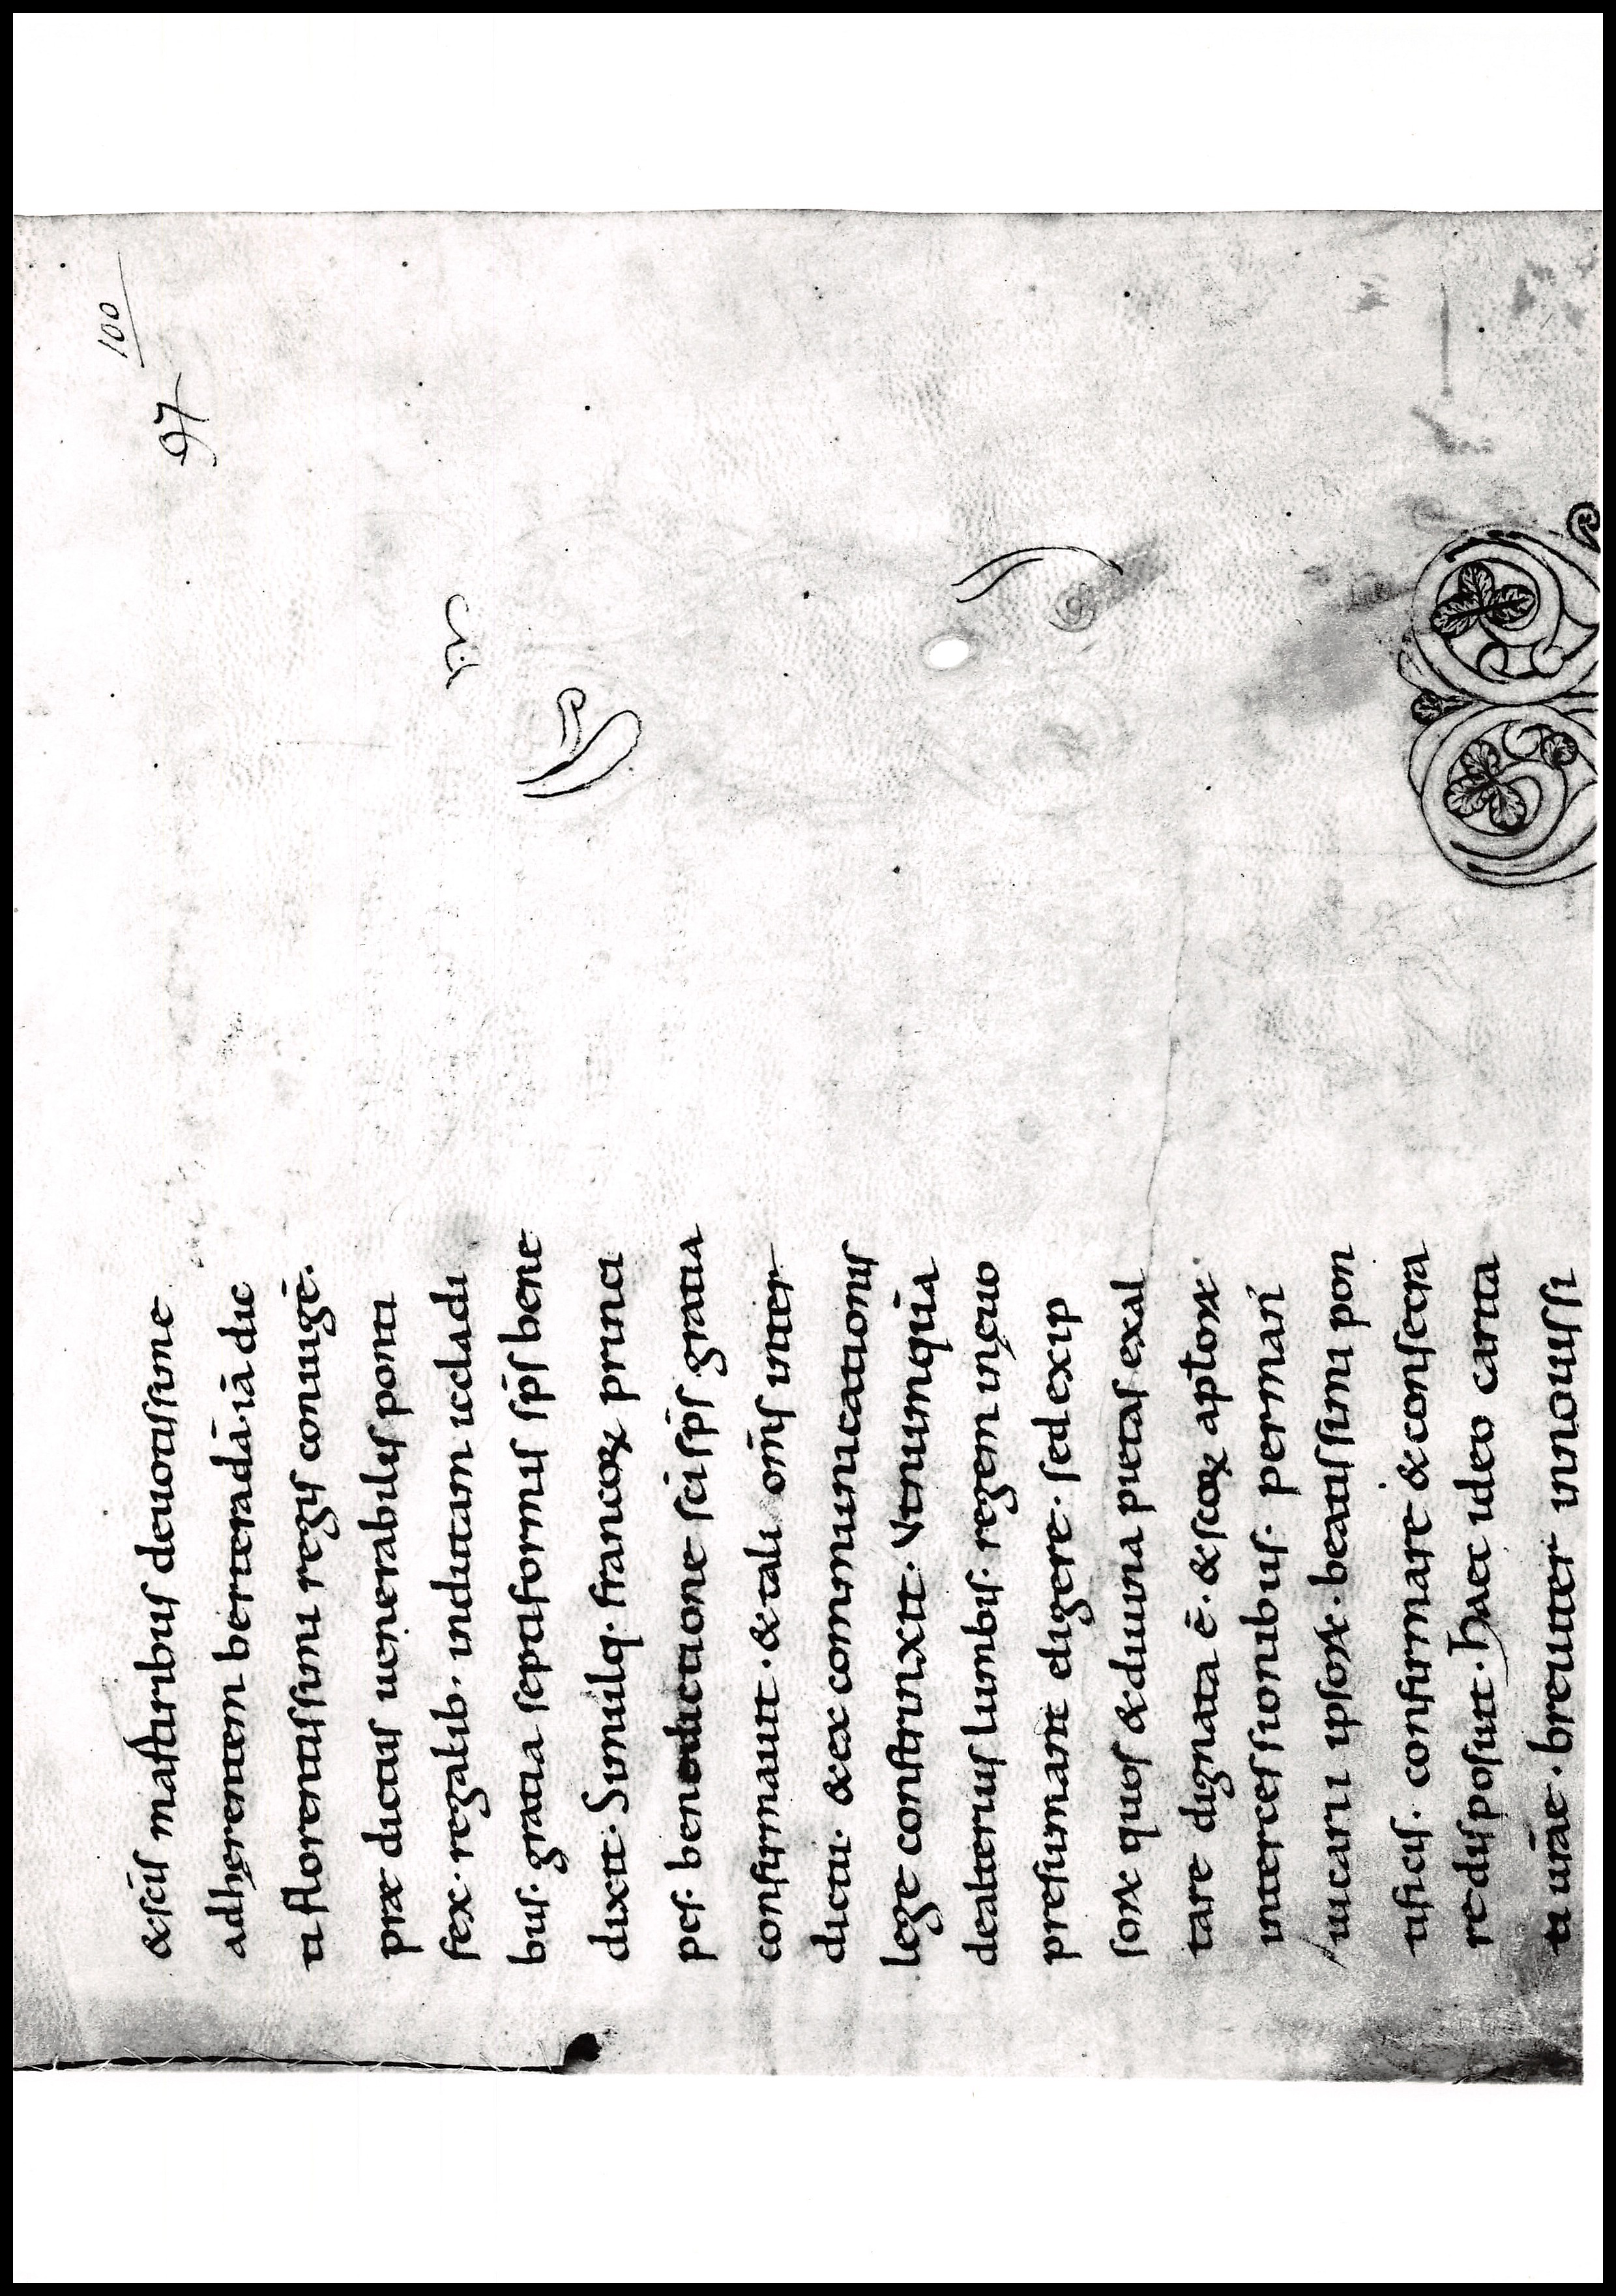 100
97
&sc̄is martiribus deuotissime
adherentem berteradā·iā dic
ti florentissimi regis coniugē.
præ dictus uenerabilis ponti
fex·regalib· indutam iccladi
bus· gratia septiformis sp̄s bene
dixit· Similq· francoꝝ princi
pes· benedictione sc̄i sp̄s gratia
confirmauit·&tali om̄is inter
dictu· &excommunicationis
lege constrinxit· Vtnumqūa
dealterius lumbis·regem inęuo
presumant eligere· sedexip
soꝝ quos &diuina pietas exal
tare dignata ē·&sc̄oꝝ ap̄toꝝ
intercessionibus· permań
uicarii ipsoꝝ·beatissimi pon
tificis· confirmare &consecra
redisposuit·haec ideo carita
ti ur̄ae·breuiter innouissi